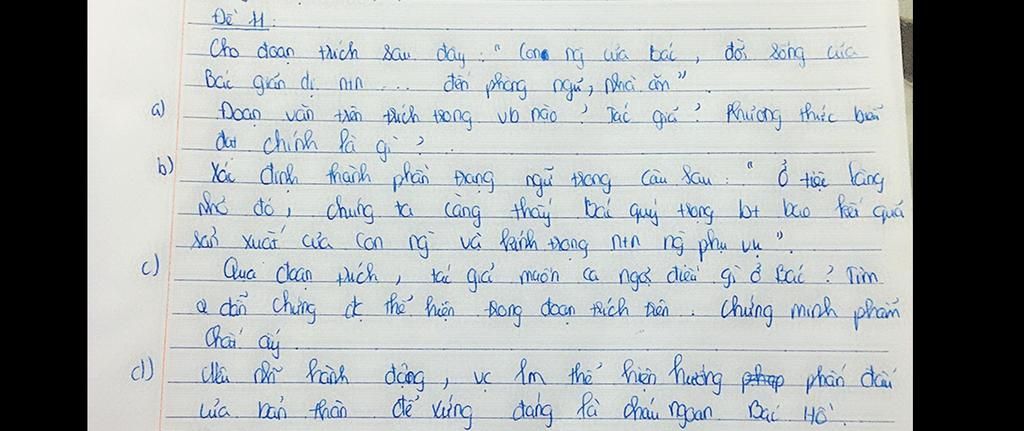 Đề 11:
Cho đoạn trích sau đây: " Con ng của bác, đời sống của
Bác giản dị ntn ... đến phòng ngủ, nhà ăn"
a) Đoạn văn trên trích trong vb nào? Tác giả? Phương thức biểu
đạt chính là gì?
b) Xác định thành phần trạng ngữ trong câu sau: " Ở việc làng
nhỏ đó, chúng ta càng thấy Bác quý trọng bt bao kết quả
sản xuất của con ng và kính trọng ntn ng phụ vụ".
c) Qua đoạn trích, tác giả muốn ca ngợi điều gì ở Bác? Tìm
2 dẫn chứng đc thể hiện trong đoạn trích trên. Chứng minh phẩm
chất ấy.
d) Nêu nh~ hành động, vc lm thể hiện hướng phấn đấu
của bản thân để xứng đáng là cháu ngoan Bác Hồ.